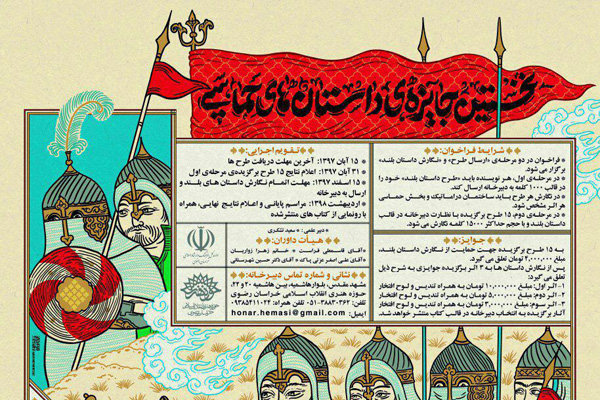 نخستین جایزه‌ی داستان‌های حماسی
شرایط فراخوان:
* فراخوان در دو مرحله‌ی «ارسال طرح» و «نگارش داستان بلند»
برگزار می شود.
* در مرحله‌ی اول، هنر نویسنده باید «طرح داستان بلند» خود را
در قالب ۱۰۰۰ کلمه به دبیرخانه ارسال کند.
* در نگارش هر طرح باید ساختمان دراماتیک و بخش حماسی
هر اثر مشخص شود.
* در مرحله‌ی دوم، ۱۵ طرح برگزیده با نظارت دبیرخانه در قالب
داستان بلند و با حجم حداکثر ۱۵۰۰۰ کلمه نگارش می شود.
جوایز:
به ۱۵ طرح برگزیده جهت حمایت از نگارش داستان بلند،
مبلغ ۲,۰۰۰,۰۰۰ تومان تعلق می گیرد.
پس از نگارش داستان ها به ۳ اثر برگزیده جوایزی به شرح ذیل
تعلق می گیرد:
۱- اثر اول: مبلغ ۱۰,۰۰۰,۰۰۰ تومان به همراه تندیس و لوح افتخار
۲- اثر دوم: مبلغ ۵,۰۰۰,۰۰۰ تومان به همراه تندیس و لوح افتخار
۳- اثر سوم: مبلغ ۳,۰۰۰,۰۰۰ تومان به همراه تندیس و لوح افتخار
آثار برگزیده به انتخاب دبیرخانه در قالب کتاب منتشر خواهد شد.
تقویم اجرایی:
* ۱۵ آبان ۱۳۹۷: آخرین مهلت دریافت طرح ها
* ۳۱ آبان ۱۳۹۷: اعلام نتایج ۱۵ طرح برگزیده‌ی مرحله‌ی اول
* ۱۵ اسفند ۱۳۹۷: مهلت اتمام نگارش داستان های بلند و
ارسال به دبیرخانه
* اردیبهشت ۱۳۹۸: مراسم پایانی و اعلام نتایج نهایی، همراه
با رونمایی از کتاب های منتشر شده
* دبیر علمی: * سعید تشکری
هیات داوران:
آقای قاسمعلی فراست * خانم زهرا زواریان
آقای علی اصغر عزتی پاک * آقای دکتر حسین شهرستانی
نشانی و شماره تماس دبیرخانه:
مشهد مقدس، بلوار هاشمیه، بین هاشمیه ۲۰ و ۲۲،
حوزه هنری انقلاب اسلامی خراسان رضوی
تلفن: ۳۸۸۳۰۲۶۲-۰۵۱ / ۰۹۳۸۵۴۱۱۰۲۴
ایمیل: honar.hemasi@gmail.com